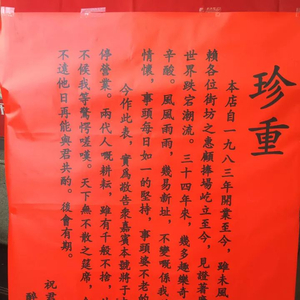 珍重
本店自一九八三年開業至今，雖未風
賴各位街坊之惠顧捧場屹立至今，見證著
世界暎宕潮流。三十四年來，幾多趣樂奇
辛酸。風風雨雨，幾易新址，不變嘅係我
情懷，事頭每日如一的堅持，事頭婆不老的
今作此表，實爲敬告眾嘉賓本號將于
停營業。兩代人嘅耕耘，雖有千般不捨，
不候我等驚愕嗟嘆。天下無不散之筵席，
不遠他日再能與君共酌。後會有期。
祝君
醉